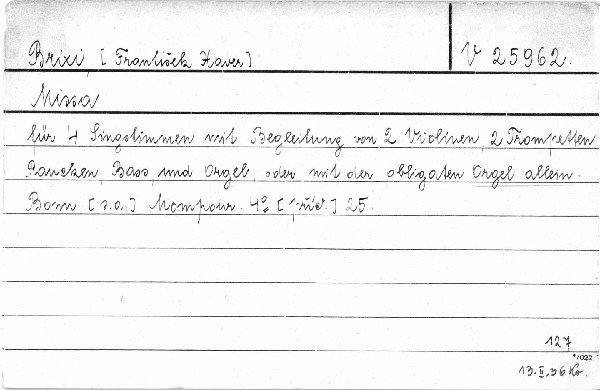 Brixi, [František Xaver]
V 25962.
Missa
für 4 Singstimmen mit Begleitung von 2 Violinen, 2 Trompetten
Paucken, Bass, und Orgel, oder mit der obligaten Orgel allein.
Bonn [s.a.] Mompour. 4° [příč.] 25.
127
*/022
13.II.36 Kr.